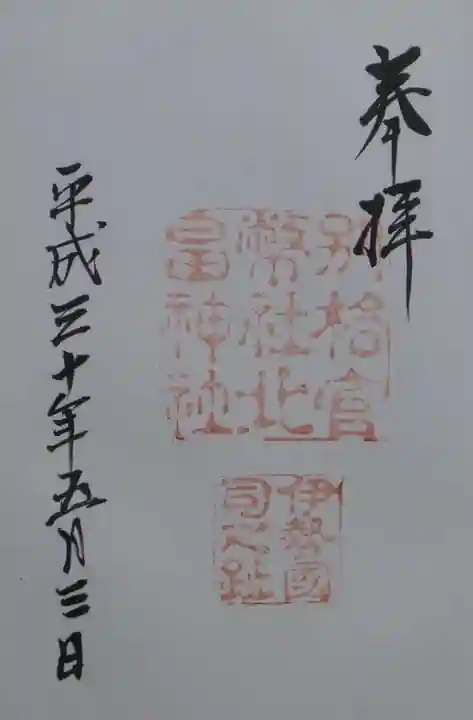 奉拝
別格官
幣社北
畠神社
伊勢國
司之跡
平成三十年五月三日